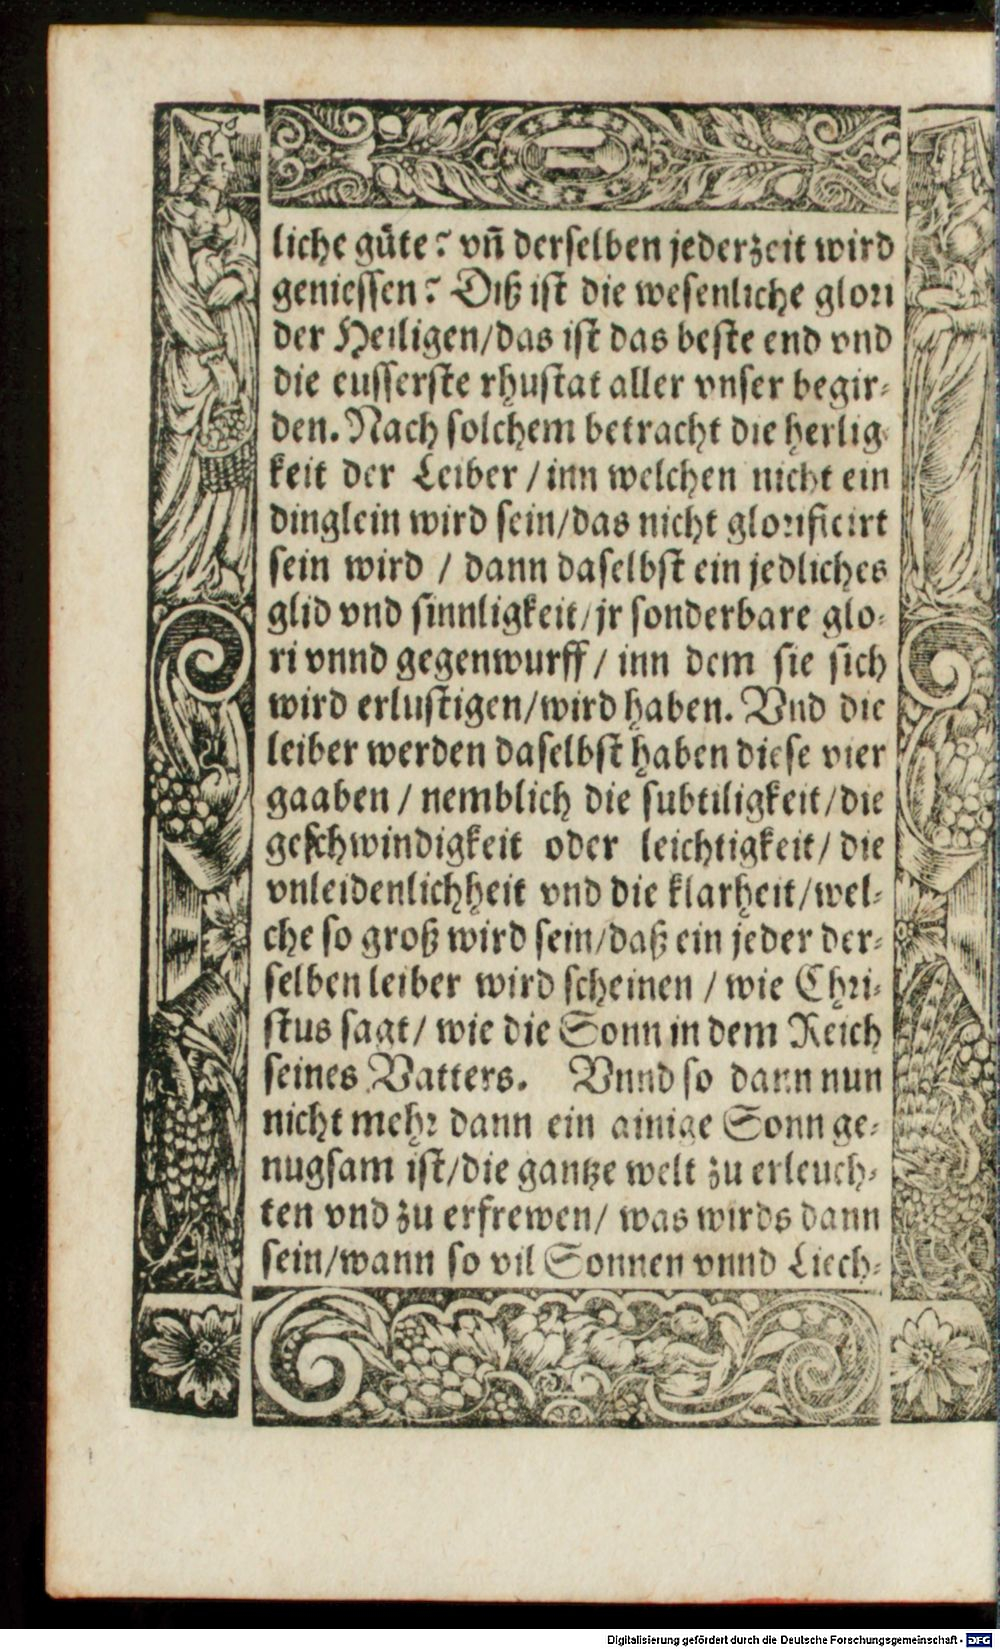 liche güte? vn̄ derselben jederzeit wird
geniessen? Diß ist die wesenliche glori
der Heiligen/das ist das beste end vnd
die eusserste rhustat aller vnser begir-
den. Nach solchem betracht die herlig-
keit der Leiber / inn welchen nicht ein
dinglein wird sein/das nicht glorificirt
sein wird / dann daselbst ein jedliches
glid vnd sinnligkeit/jr sonderbare glo-
ri vnnd gegenwurff / inn dem sie sich
wird erlustigen/wird haben. Vnd die
leiber werden daselbst haben diese vier
gaaben / nemblich die subtiligkeit/die
geschwindigkeit oder leichtigkeit/ die
vnleidenlichheit vnd die klarheit/wel-
che so groß wird sein/daß ein jeder der-
selben leiber wird scheinen / wie Chri-
stus sagt/ wie die Sonn in dem Reich
seines Vatters. Vnnd so dann nun
nicht mehr dann ein ainige Sonn ge-
nugsam ist/die gantze welt zu erleuch-
ten vnd zu erfrewen/ was wirds dann
sein/wann so vil Sonnen vnnd Liech-
Digitalisierung gefördert durch die Deutsche Forschungsgemeinschaft - DFG